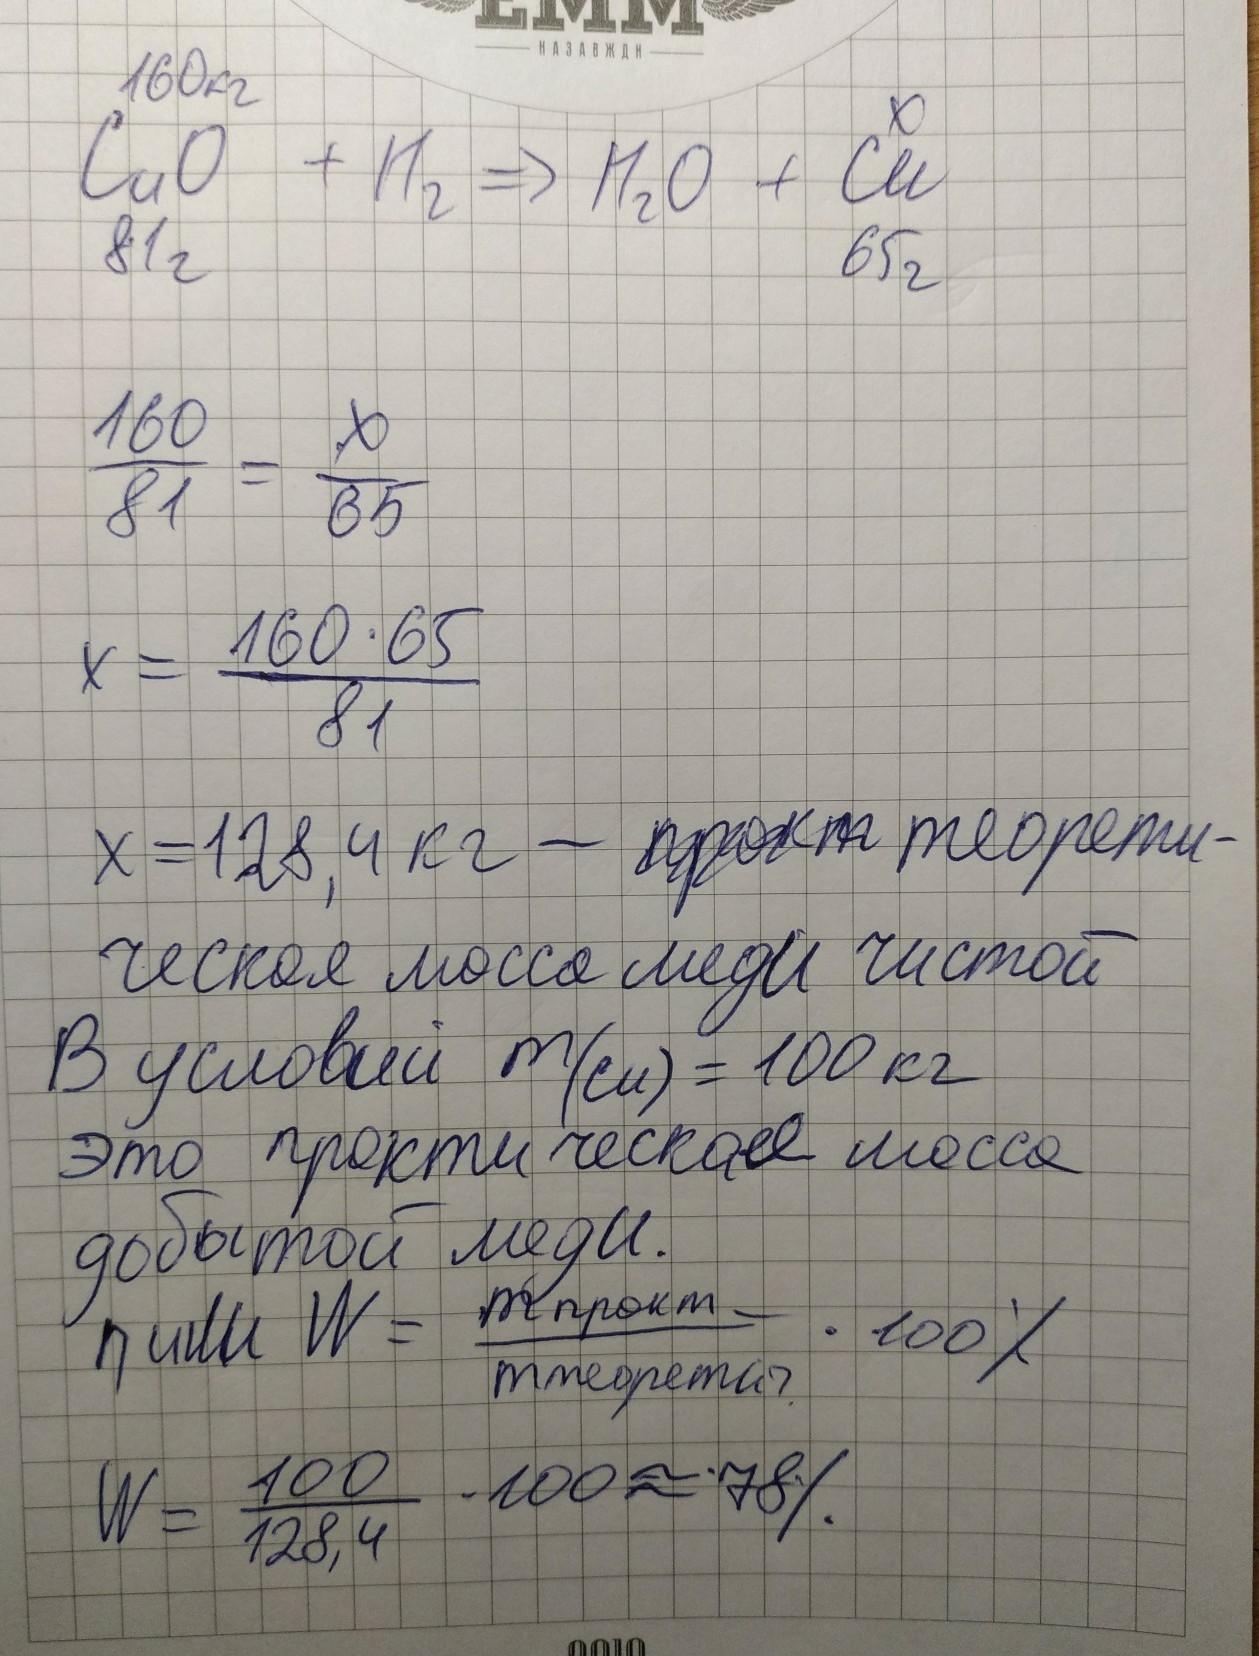 ЕММ
НАЗАВЖДИ
160кг x
CuO + H₂ => H₂O + Cu
81г 65г
160/81 = x/65
x = 160·65/81
x = 128,4 кг — теорети-
ческая масса меди чистой
В условий m(Cu) = 100 кг
это практическая масса
добытой меди.
пиши W = m практ/m теоретич. · 100%
W = 100/128,4 · 100 ≈ 78%.